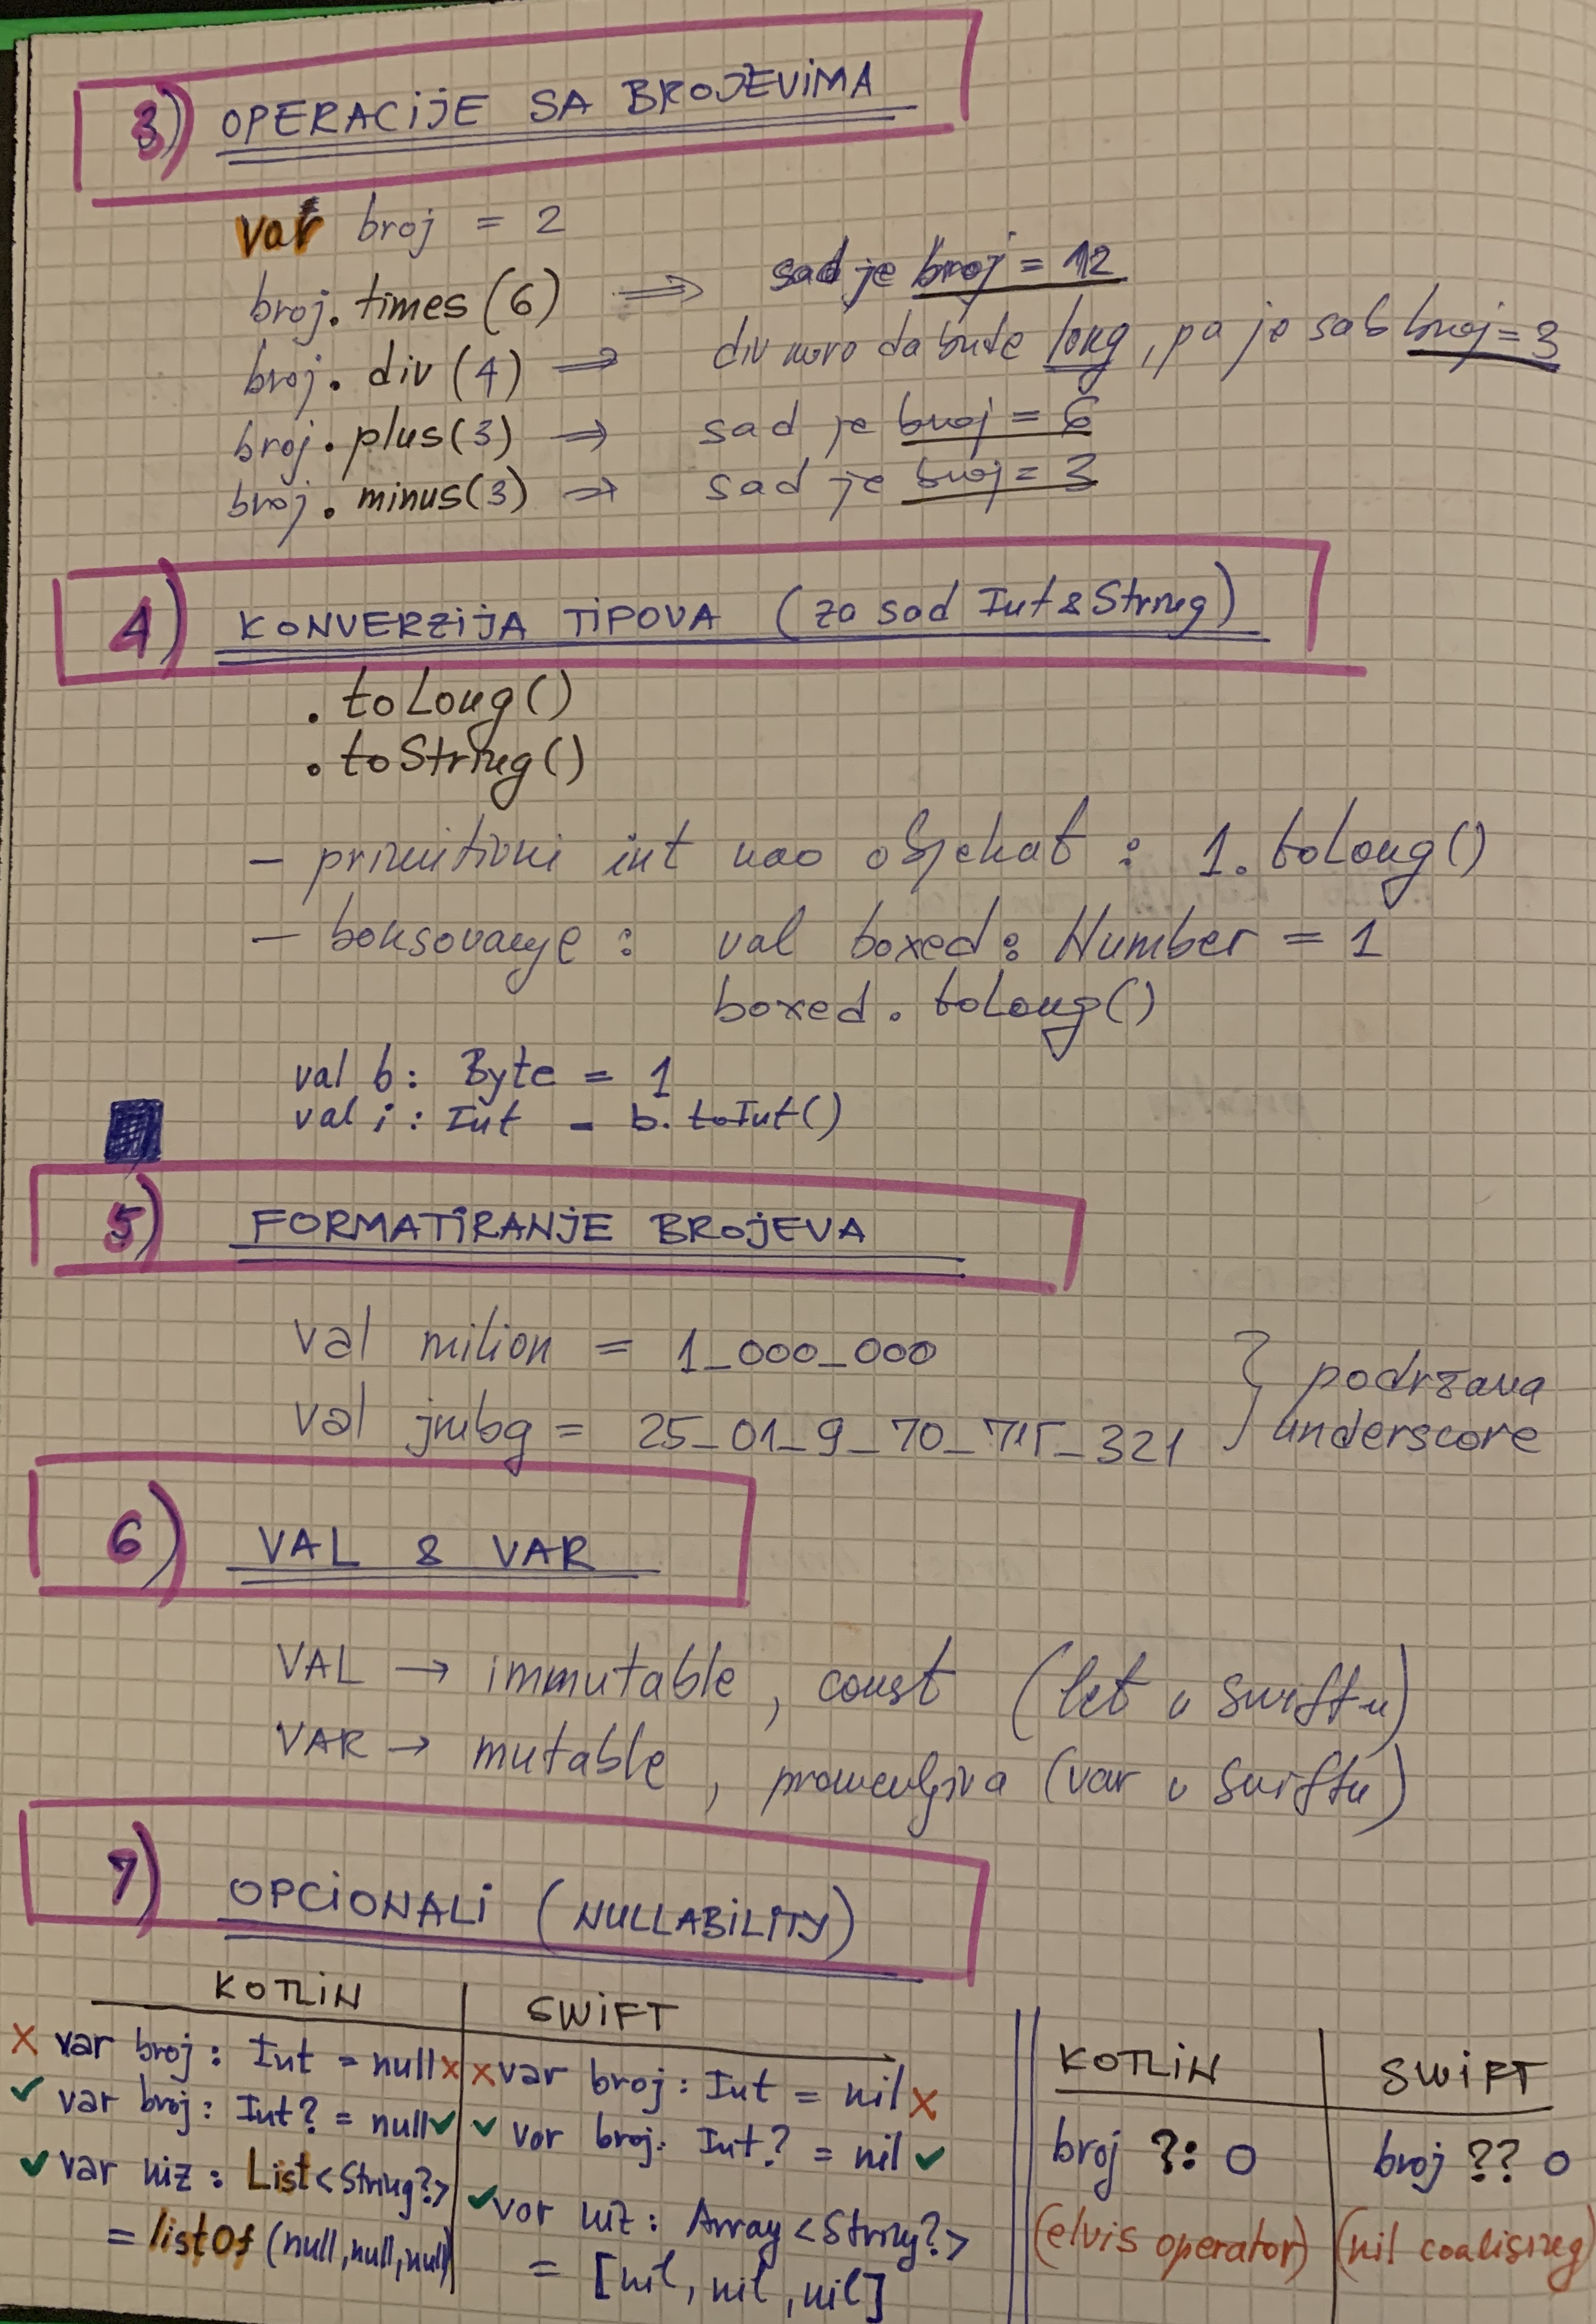 3) OPERACIJE SA BROJEVIMA
var broj = 2
broj.times(6) => sad je broj = 12
broj.div(4) => div mora da bude long, pa je sad broj = 3
broj.plus(3) => sad je broj = 6
broj.minus(3) => sad je broj = 3
4) KONVERZIJA TIPOVA (za sad Int & String)
.toLong()
.toString()
- primitivni int kao objekat : 1.toLong()
- boksovanje : val boxed: Number = 1
boxed.toLong()
val b: Byte = 1
val i: Int = b.toInt()
5) FORMATIRANJE BROJEVA
val milion = 1_000_000
val jmbg = 25_01_9_70_715_321 } podrzava underscore
6) VAL & VAR
VAL → immutable, const (let u Swiftu)
VAR → mutable, promenljiva (var u Swiftu)
7) OPCIONALI (NULLABILITY)
KOTLIN
x var broj: Int = null x
✓ var broj: Int? = null ✓
✓ var niz: List<String?>
= listOf(null,null,null)
SWIFT
x var broj: Int = nil x
✓ var broj: Int? = nil ✓
✓ var niz: Array<String?>
= [nil, nil, nil]
KOTLIN
broj ?: 0
(elvis operator)
SWIFT
broj ?? 0
(nil coalising)